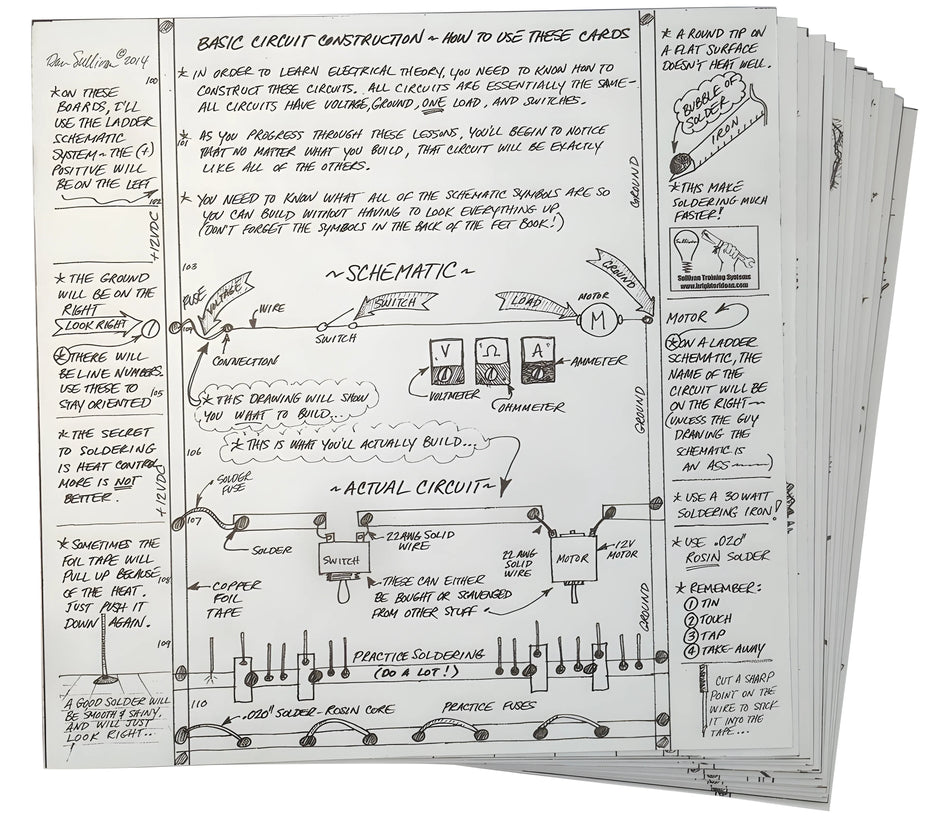 BASIC CIRCUIT CONSTRUCTION ~ HOW TO USE THESE CARDS
Dan Sullivan © 2014
100
* ON THESE
BOARDS, I'LL
USE THE LADDER
SCHEMATIC
SYSTEM ~ THE (+)
POSITIVE WILL
BE ON THE LEFT
102
+12VDC
* THE GROUND
WILL BE ON THE
RIGHT
LOOK RIGHT
* THERE WILL
BE LINE NUMBERS.
USE THESE TO
STAY ORIENTED
105
* THE SECRET
TO SOLDERING
IS HEAT CONTROL
MORE IS NOT
BETTER.
+12VDC
* SOMETIMES THE
FOIL TAPE WILL
PULL UP BECAUSE
OF THE HEAT.
JUST PUSH IT
DOWN AGAIN.
108
109
A GOOD SOLDER WILL
BE SMOOTH & SHINY.
AND WILL JUST
LOOK RIGHT...
!
* IN ORDER TO LEARN ELECTRICAL THEORY, YOU NEED TO KNOW HOW TO
CONSTRUCT THESE CIRCUITS. ALL CIRCUITS ARE ESSENTIALLY THE SAME~
ALL CIRCUITS HAVE VOLTAGE, GROUND, ONE LOAD, AND SWITCHES.
* AS YOU PROGRESS THROUGH THESE LESSONS, YOU'LL BEGIN TO NOTICE
101
THAT NO MATTER WHAT YOU BUILD, THAT CIRCUIT WILL BE EXACTLY
LIKE ALL OF THE OTHERS.
* YOU NEED TO KNOW WHAT ALL OF THE SCHEMATIC SYMBOLS ARE SO
YOU CAN BUILD WITHOUT HAVING TO LOOK EVERYTHING UP
(DON'T FORGET THE SYMBOLS IN THE BACK OF THE FET BOOK!)
GROUND
103
~SCHEMATIC~
FUSE
VOLTAGE
WIRE
SWITCH
LOAD
MOTOR
GROUND
104
M
SWITCH
CONNECTION
V
Ω
A
VOLTMETER
OHMMETER
AMMETER
* THIS DRAWING WILL SHOW
YOU WHAT TO BUILD...
GROUND
106
* THIS IS WHAT YOU'LL ACTUALLY BUILD...
~ACTUAL CIRCUIT~
SOLDER
FUSE
107
SOLDER
SWITCH
22 AWG SOLID
WIRE
22 AWG
SOLID
WIRE
MOTOR
12V
MOTOR
COPPER
FOIL
TAPE
THESE CAN EITHER
BE BOUGHT OR SCAVENGED
FROM OTHER STUFF
GROUND
PRACTICE SOLDERING
(DO A LOT!)
110
.020" SOLDER-ROSIN CORE
PRACTICE FUSES
* A ROUND TIP ON
A FLAT SURFACE
DOESN'T HEAT WELL.
BUBBLE OF
SOLDER
IRON
* THIS MAKE
SOLDERING MUCH
FASTER!
Sullivan
Sullivan Training Systems
www.brighterideas.com
MOTOR
* ON A LADDER
SCHEMATIC, THE
NAME OF THE
CIRCUIT WILL BE
ON THE RIGHT~
(UNLESS THE GUY
DRAWING THE
SCHEMATIC IS
AN ASS~~)
* USE A 30 WATT
SOLDERING IRON!
* USE .020"
ROSIN SOLDER
* REMEMBER:
① TIN
② TOUCH
③ TAP
④ TAKE-AWAY
CUT A SHARP
POINT ON THE
WIRE TO STICK
IT INTO THE
TAPE...